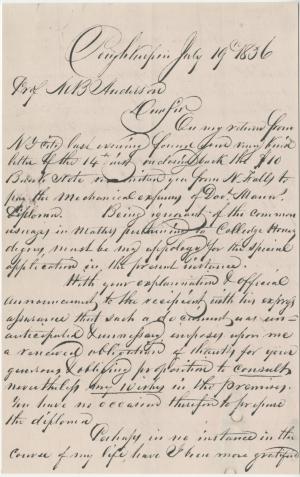 Poughkeepsie July 19th 1856
Prof M B Anderson
Dear Sir
On my return from
N. York last evening found your very kind
letter of the 14th inst enclosing back the $10
to
pay the Mechanical expenses of Doct.
Diploma. Being ignorant of the common
usages in matters pertaining to College Honor
degrees must be my appology for the special
application in the present instance.
With your explanation & official
announcement to the recipient with his express
assurance that such a document was un-
anticipated & unnecessary imposes upon me
a renewed obligation of thanks for your
generous & obliging proposition to consult
nevertheless my wishes in the premises.
You have no occasion therefore to prepare
the diploma
Perhaps in no instance in the
course of my life have I been more gratified